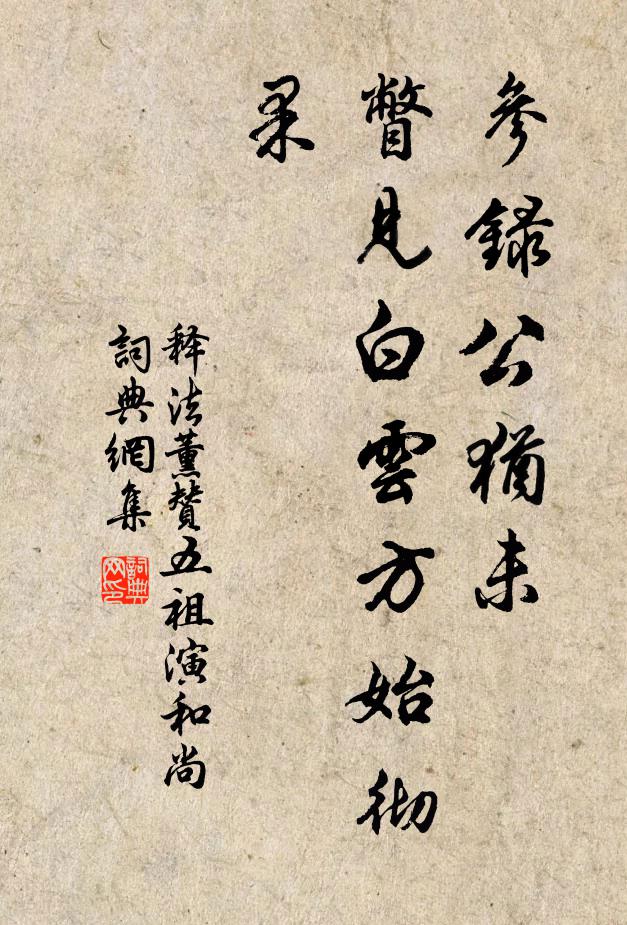 參錄公猶未
瞥見白雲方始彻
释法薰贊五祖演和尚
詞典網集
詞典
网印